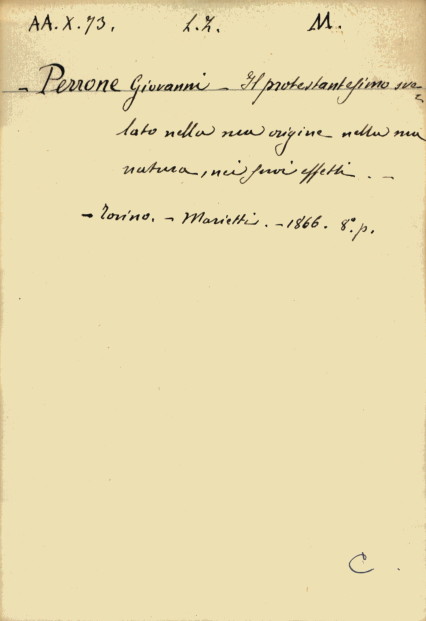 AA.X.73. L.Z. M.
- Perrone Giovanni - Il protestantesimo sve=
lato nella sua origine nella sua
natura, nei suoi effetti. -
- Torino. - Marietti. - 1866. 8º. p.
C.